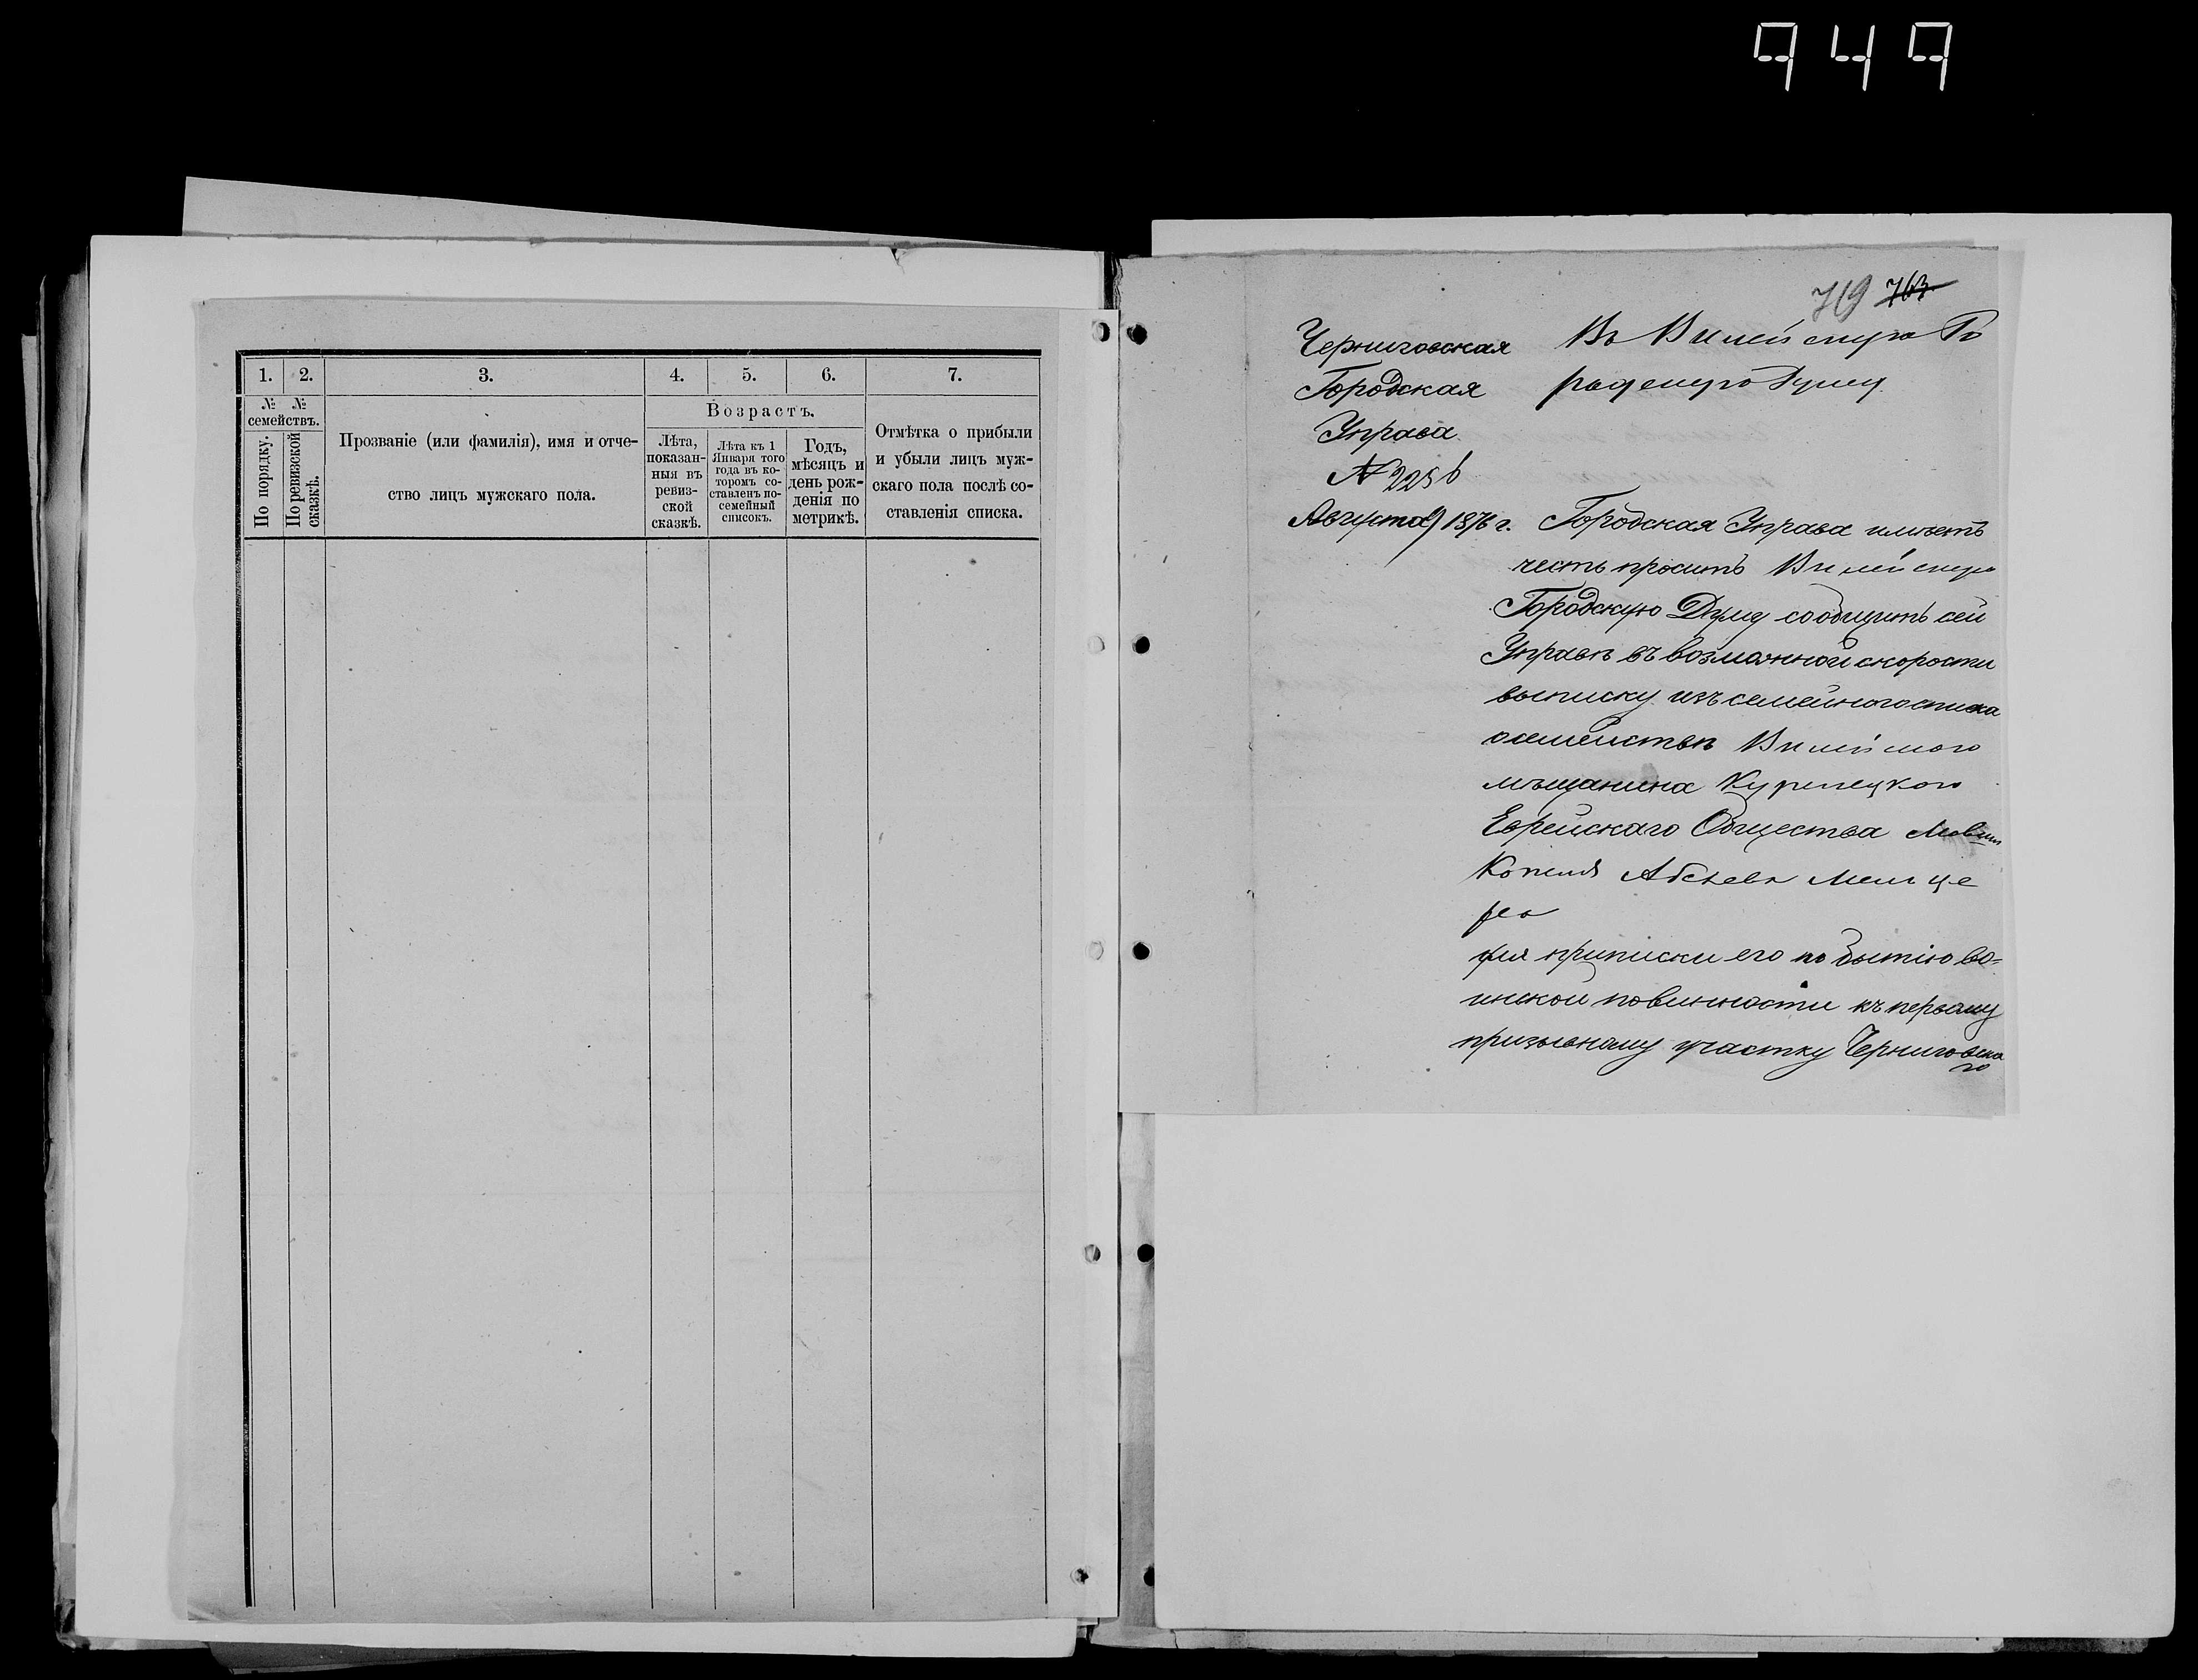 949
1.
2.
3.
4.
5.
6.
7.
№ №
семействъ.
По порядку.
По ревизской
сказкѣ.
Прозваніе (или фамилія), имя и отче-
ство лицъ мужскаго пола.
Возрастъ.
Лѣта,
показан-
ныя въ
ревиз-
ской
сказкѣ.
Лѣта къ 1
Января того
года въ ко-
торомъ со-
ставленъ по-
семейный
списокъ.
Годъ,
мѣсяцъ и
день рож-
денія по
метрикѣ.
Отмѣтка о прибыли
и убыли лицъ муж-
скаго пола послѣ со-
ставленія списка.
719 763
Черниговская
Городская
Управа
№ 2256
Августа 9 1876 г.
Въ Вилейскую Го
родскую Думу
Городская Управа имѣетъ
честь проситъ Вилейскую
Городскую Думу сообщить сей
Управѣ въ возможной скорости
выписку изъ семейного списка
о семействѣ Вилейского
мѣщанина Куренецкого
Еврейскаго Общества
Копеля Абелева Мельце
ра
для приписки его по отбытію во-
инской повинности къ первому
призывному участку Черниговска
го